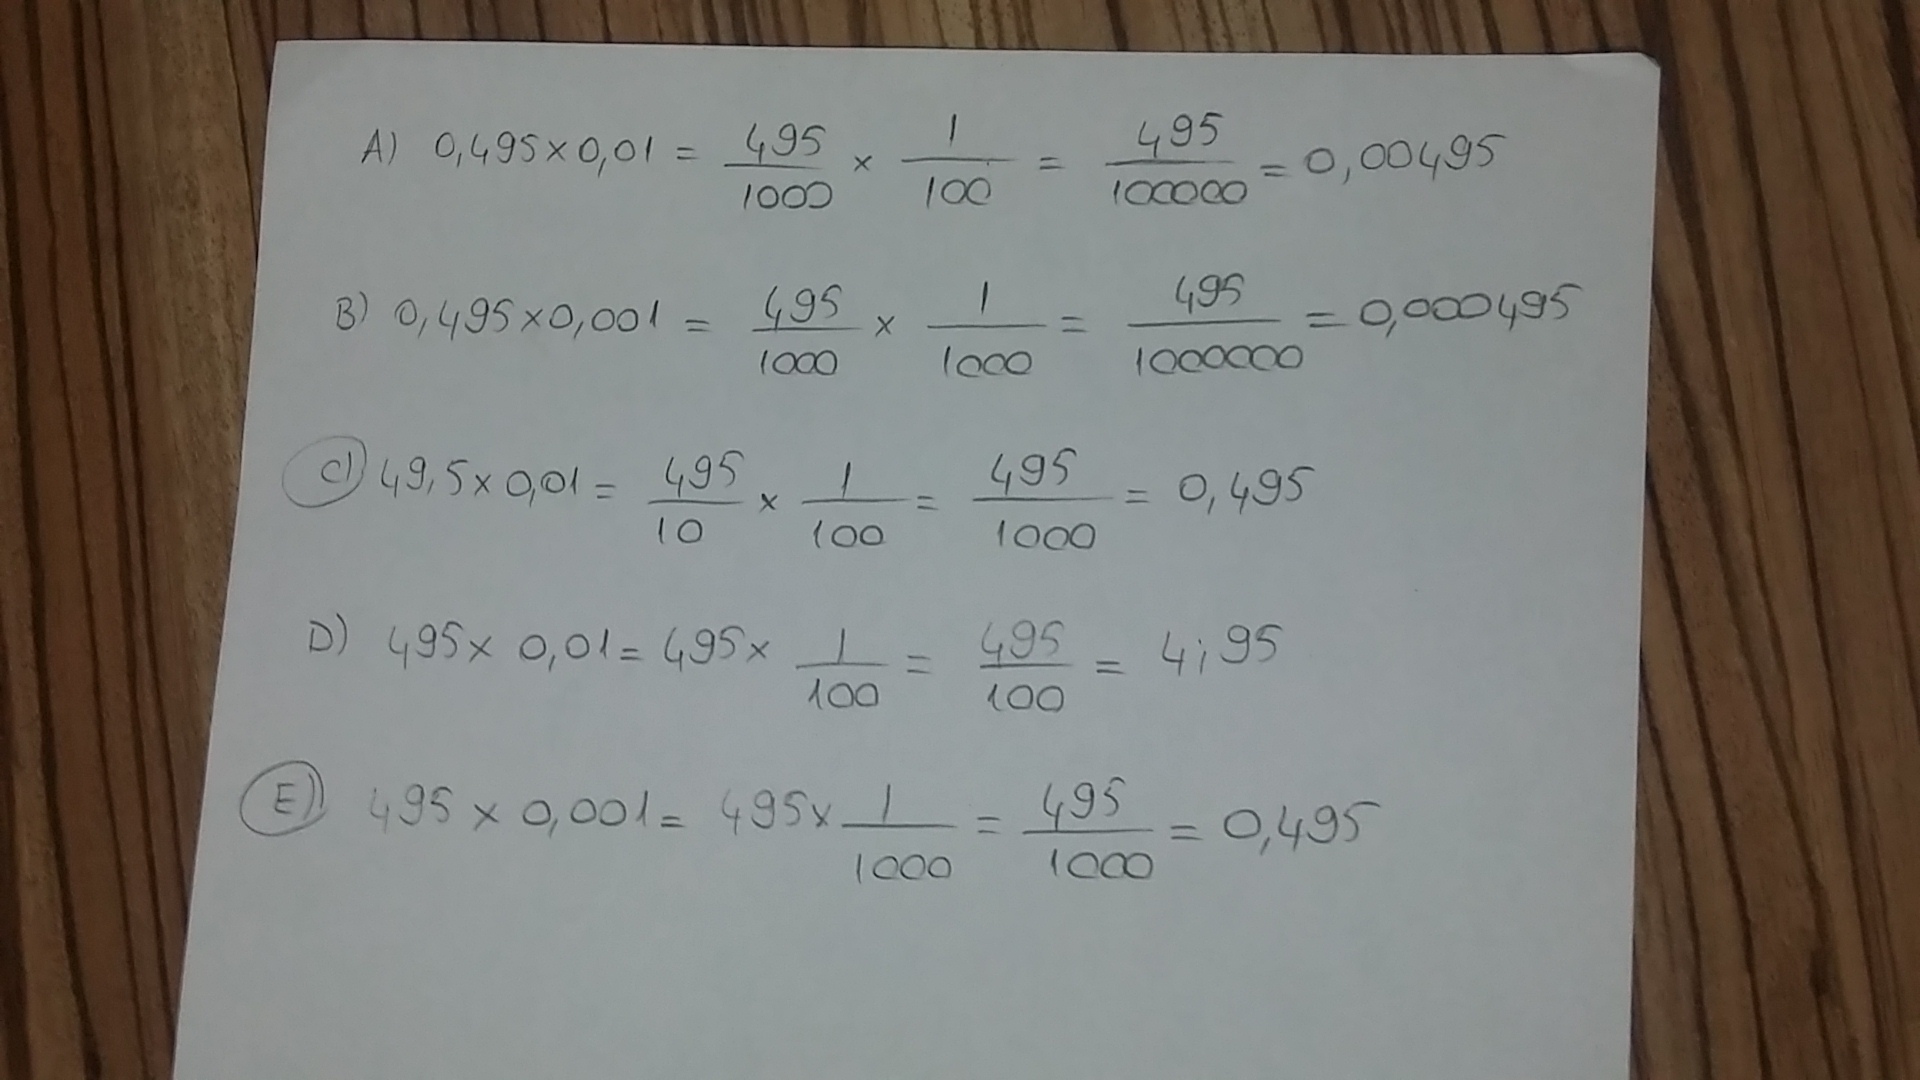 A) 0,495 x 0,01 = 495/1000 x 1/100 = 495/100000 = 0,00495
B) 0,495 x 0,001 = 495/1000 x 1/1000 = 495/1000000 = 0,000495
C) 49,5 x 0,01 = 495/10 x 1/100 = 495/1000 = 0,495
D) 495 x 0,01 = 495 x 1/100 = 495/100 = 4,95
E) 495 x 0,001 = 495 x 1/1000 = 495/1000 = 0,495